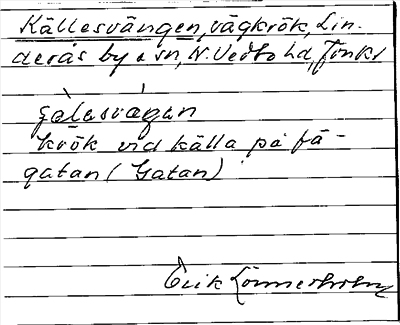 Källesvängen, vägkrök, Lin-
derås by o sn, N. Vedbo hd, Jönk.
krök vid källa på få-
gatan (Gatan)
Erik Lönnerholm